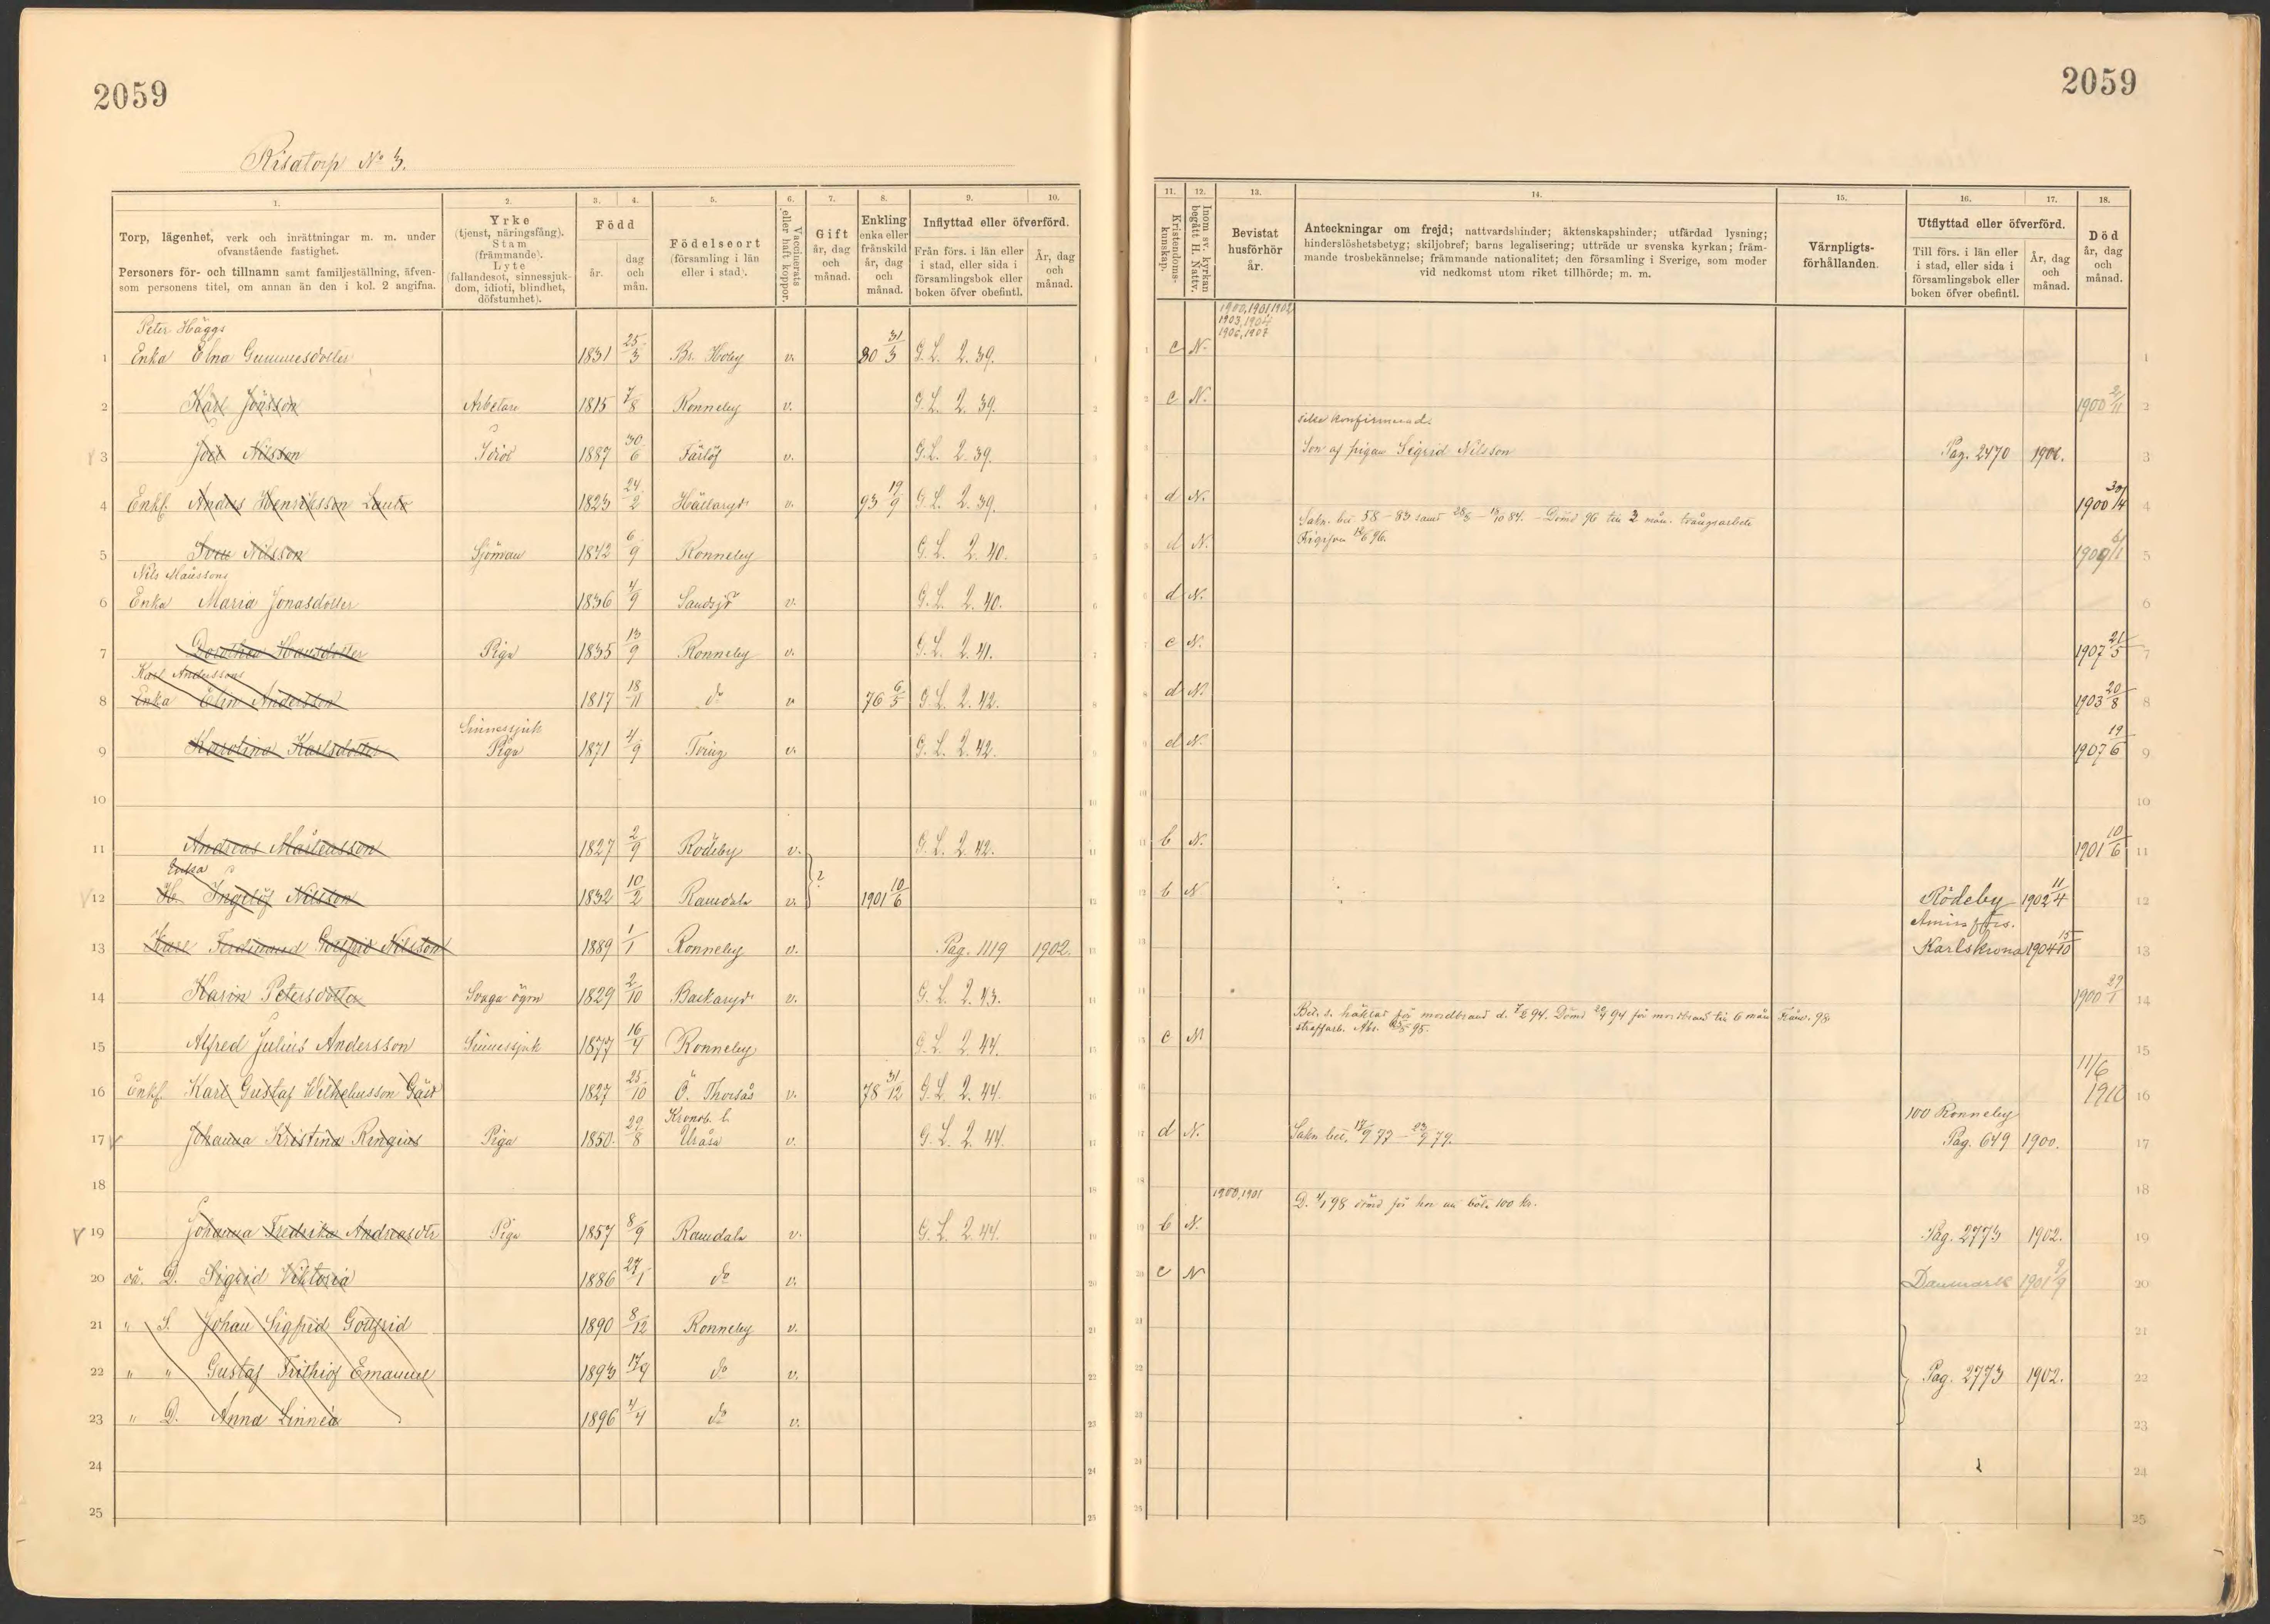 2059
2059
Risatorp No 3.
1.
2.
3.
4.
5.
6.
7.
8.
9.
10.
Torp, lägenhet, verk och inrättningar m. m. under ofvanstående fastighet.
Personers för- och tillnamn samt familjeställning, äfvensom personens titel, om annan än den i kol. 2 angifna.
Yrke (tjenst, näringsfång). Stam (främmande). Lyte (fallandesot, sinnessjukdom, idioti, blindhet, döfstumhet).
Född
år.
dag och mån.
Födelseort (församling i län eller i stad).
Vaccinerats eller haft koppor.
Gift år, dag och månad.
Enkling enka eller frånskild år, dag och månad.
Inflyttad eller öfverförd.
Från förs. i län eller i stad, eller sida i församlingsbok eller boken öfver obefintl.
År, dag och månad.
11.
12.
13.
14.
15.
16.
17.
18.
Kristendomskunskap.
Inom sv. kyrkan begått H. Nattv.
Bevistat husförhör år.
Anteckningar om frejd; nattvardshinder; äktenskapshinder; utfärdad lysning; hinderslöshetsbetyg; skiljobref; barns legalisering; utträde ur svenska kyrkan; främmande trosbekännelse; främmande nationalitet; den församling i Sverige, som moder vid nedkomst utom riket tillhörde; m. m.
Värnpligtsförhållanden.
Utflyttad eller öfverförd.
Till förs. i län eller i stad, eller sida i församlingsbok eller boken öfver obefintl.
År, dag och månad.
Död år, dag och månad.
Peter Häggs
1900, 1901, 1902
1903, 1904
1906, 1907
1 Enka Elna Gummesdotter 1831 25/3 Br. Hoby v. 80 31/3 G. L. 2. 39. c N.
2 Karl Jönsson Arbetare 1815 7/8 Ronneby v. G. L. 2. 39. c N. 1900 2/11
icke konfirmerad.
3 Joel Nilsson Idiot 1887 30/6 Färlöf v. G. L. 2. 39. Son af pigan Sigrid Nilsson Pag. 2470 1906.
4 Enkl. Anders Henriksson Lautz 1823 24/2 Hällaryd v. 93 19/9 G. L. 2. 39. d N. 1900 30/4
Sakn. bet. 58-83 samt 28/8 - 18/10 84. - Dömd 96 till 2 mån. tvångsarbete
Frigifven 18/6 96.
5 Sven Nilsson Sjöman 1842 6/9 Ronneby G. L. 2. 40. d N. 1909 6/11
Nils Månssons
6 Enka Maria Jonasdotter 1836 4/9 Sandsjö v. G. L. 2. 40. d N.
7 Dorothea Hansdotter Piga 1835 13/9 Ronneby v. G. L. 2. 41. c N. 1907 21/5
Karl Anderssons
8 Enka Elin Andersson 1817 18/11 do v 76 6/5 G. L. 2. 42. d N. 1903 20/8
Sinnessjuk
9 Karolina Karlsdotter Piga 1871 4/9 Tving v. G. L. 2. 42. d N. 1907 19/6
10
11 Andreas Mårtensson 1827 2/9 Rödeby v. G. L. 2. 42. b N. 1901 10/6
Enka
12 H. Ingelöf Nilsson 1832 10/2 Ramdala v. ? 1901 10/6 b N Rödeby 1902 11/4
13 Karl Ferdinand Gottfrid Nilsson 1889 1/1 Ronneby v. Pag. 1119 1902. Amir. förs. Karlskrona 1904 15/10
14 Karin Petersdotter Svaga ögon 1829 2/10 Backaryd v. G. L. 2. 43. 1900 29/1
Bet. s. häktad för mordbrand d. 7/2 94. Dömd 24/4 94 för mordbrand till 6 mån
straffarb. 95.
15 Alfred Julius Andersson Sinnessjuk 1877 16/4 Ronneby G. L. 2. 44. c N
16 Enkl. Karl Gustaf Wilhelmsson Gäst 1827 25/10 Ö. Thorsås v. 78 31/12 G. L. 2. 44. 11/6 1910
Kronob. l.
17 Johanna Kristina Ringius Piga 1850 29/8 Uråsa v. G. L. 2. 44. d N. Sakn bet. 18/9 77 - 23/9 79. 100 Ronneby Pag. 649 1900.
18
1900, 1901
D. 4/1 98 dömd för hor att böta 100 kr.
19 Johanna Fredrika Andreasdtr Piga 1857 8/9 Ramdala v. G. L. 2. 44. b N. Pag. 2773 1902.
20 oä. D. Sigrid Viktoria 1886 27/1 do v. c N Danmark 1901 9/9
21 " S. Johan Sigfrid Gottfrid 1890 8/12 Ronneby v.
22 " " Gustaf Frithiof Emanuel 1893 17/9 do v. Pag. 2773 1902.
23 " D. Anna Linnéa 1896 4/4 do v.
24
25